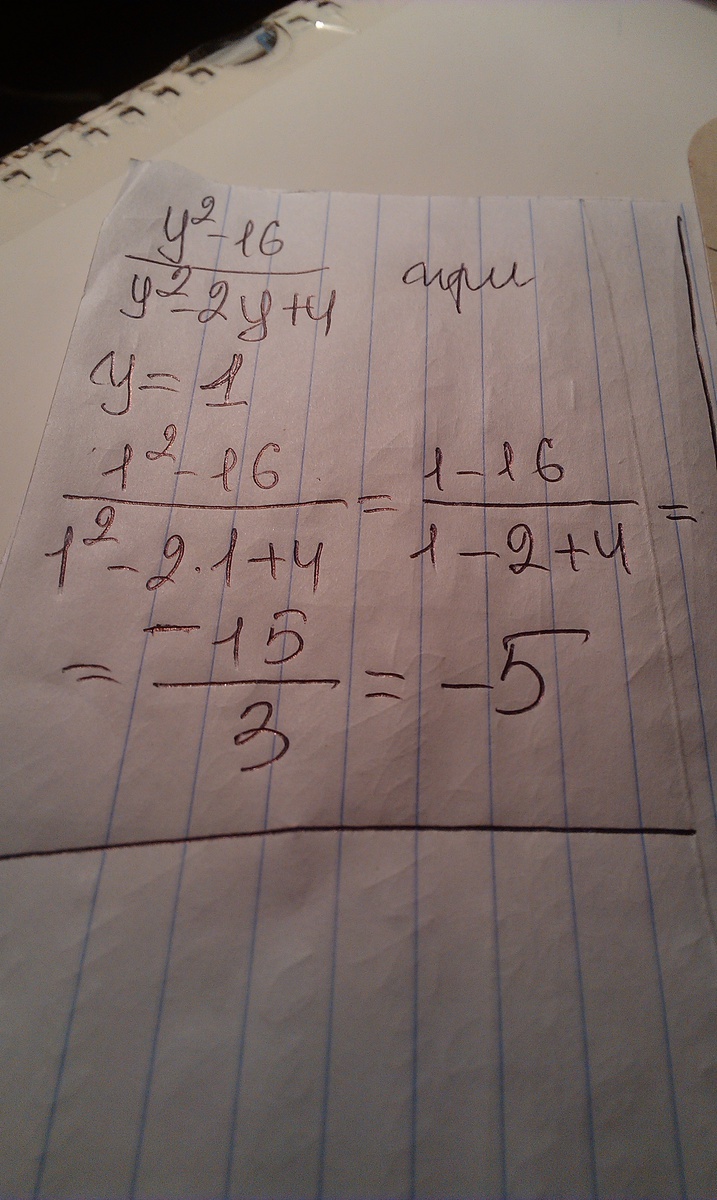 y²-16 / y²-2y+4 при
y = 1
1²-16 / 1²-2·1+4 = 1-16 / 1-2+4 =
= -15 / 3 = -5